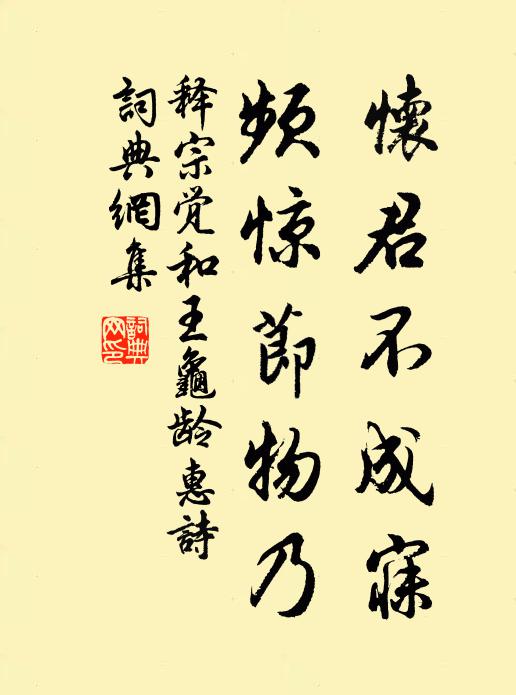 懷君不成寐
頻惊節物乃
释宗觉和王龜龄惠詩
詞典網集
詞典网印